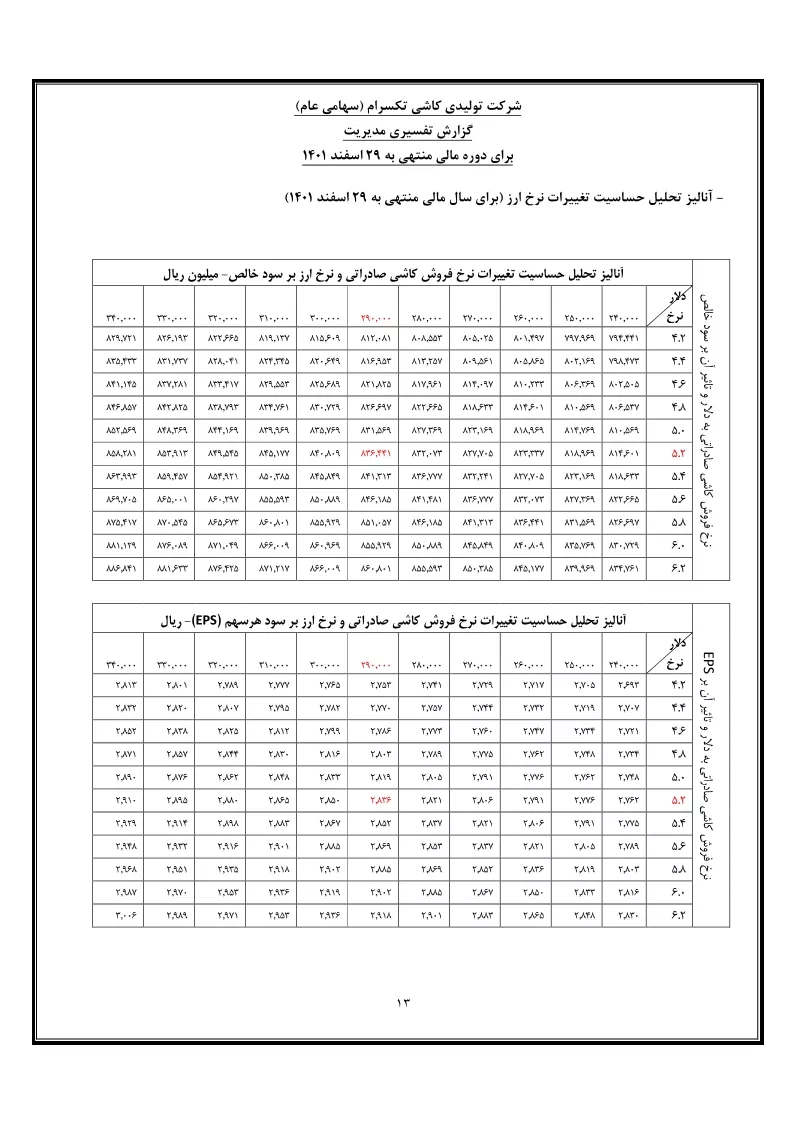 شرکت تولیدی کاشی تکسرام (سهامی عام)
گزارش تفسیری مدیریت
برای دوره مالی منتهی به ۲۹ اسفند ۱۴۰۱
- آنالیز تحلیل حساسیت تغییرات نرخ ارز (برای سال مالی منتهی به ۲۹ اسفند ۱۴۰۱)
نرخ فروش کاشی صادراتی به دلار و تاثیر آن بر سود خالص
آنالیز تحلیل حساسیت تغییرات نرخ فروش کاشی صادراتی و نرخ ارز بر سود خالص- میلیون ریال
دلار
نرخ ۲۴۰,۰۰۰ ۲۵۰,۰۰۰ ۲۶۰,۰۰۰ ۲۷۰,۰۰۰ ۲۸۰,۰۰۰ ۲۹۰,۰۰۰ ۳۰۰,۰۰۰ ۳۱۰,۰۰۰ ۳۲۰,۰۰۰ ۳۳۰,۰۰۰ ۳۴۰,۰۰۰
۴.۲ ۷۹۴,۴۴۱ ۷۹۷,۹۶۹ ۸۰۱,۴۹۷ ۸۰۵,۰۲۵ ۸۰۸,۵۵۳ ۸۱۲,۰۸۱ ۸۱۵,۶۰۹ ۸۱۹,۱۳۷ ۸۲۲,۶۶۵ ۸۲۶,۱۹۳ ۸۲۹,۷۲۱
۴.۴ ۷۹۸,۴۷۳ ۸۰۲,۱۶۹ ۸۰۵,۸۶۵ ۸۰۹,۵۶۱ ۸۱۳,۲۵۷ ۸۱۶,۹۵۳ ۸۲۰,۶۴۹ ۸۲۴,۳۴۵ ۸۲۸,۰۴۱ ۸۳۱,۷۳۷ ۸۳۵,۴۳۳
۴.۶ ۸۰۲,۵۰۵ ۸۰۶,۳۶۹ ۸۱۰,۲۳۳ ۸۱۴,۰۹۷ ۸۱۷,۹۶۱ ۸۲۱,۸۲۵ ۸۲۵,۶۸۹ ۸۲۹,۵۵۳ ۸۳۳,۴۱۷ ۸۳۷,۲۸۱ ۸۴۱,۱۴۵
۴.۸ ۸۰۶,۵۳۷ ۸۱۰,۵۶۹ ۸۱۴,۶۰۱ ۸۱۸,۶۳۳ ۸۲۲,۶۶۵ ۸۲۶,۶۹۷ ۸۳۰,۷۲۹ ۸۳۴,۷۶۱ ۸۳۸,۷۹۳ ۸۴۲,۸۲۵ ۸۴۶,۸۵۷
۵.۰ ۸۱۰,۵۶۹ ۸۱۴,۷۶۹ ۸۱۸,۹۶۹ ۸۲۳,۱۶۹ ۸۲۷,۳۶۹ ۸۳۱,۵۶۹ ۸۳۵,۷۶۹ ۸۳۹,۹۶۹ ۸۴۴,۱۶۹ ۸۴۸,۳۶۹ ۸۵۲,۵۶۹
۵.۲ ۸۱۴,۶۰۱ ۸۱۸,۹۶۹ ۸۲۳,۳۳۷ ۸۲۷,۷۰۵ ۸۳۲,۰۷۳ ۸۳۶,۴۴۱ ۸۴۰,۸۰۹ ۸۴۵,۱۷۷ ۸۴۹,۵۴۵ ۸۵۳,۹۱۳ ۸۵۸,۲۸۱
۵.۴ ۸۱۸,۶۳۳ ۸۲۳,۱۶۹ ۸۲۷,۷۰۵ ۸۳۲,۲۴۱ ۸۳۶,۷۷۷ ۸۴۱,۳۱۳ ۸۴۵,۸۴۹ ۸۵۰,۳۸۵ ۸۵۴,۹۲۱ ۸۵۹,۴۵۷ ۸۶۳,۹۹۳
۵.۶ ۸۲۲,۶۶۵ ۸۲۷,۳۶۹ ۸۳۲,۰۷۳ ۸۳۶,۷۷۷ ۸۴۱,۴۸۱ ۸۴۶,۱۸۵ ۸۵۰,۸۸۹ ۸۵۵,۵۹۳ ۸۶۰,۲۹۷ ۸۶۵,۰۰۱ ۸۶۹,۷۰۵
۵.۸ ۸۲۶,۶۹۷ ۸۳۱,۵۶۹ ۸۳۶,۴۴۱ ۸۴۱,۳۱۳ ۸۴۶,۱۸۵ ۸۵۱,۰۵۷ ۸۵۵,۹۲۹ ۸۶۰,۸۰۱ ۸۶۵,۶۷۳ ۸۷۰,۵۴۵ ۸۷۵,۴۱۷
۶.۰ ۸۳۰,۷۲۹ ۸۳۵,۷۶۹ ۸۴۰,۸۰۹ ۸۴۵,۸۴۹ ۸۵۰,۸۸۹ ۸۵۵,۹۲۹ ۸۶۰,۹۶۹ ۸۶۶,۰۰۹ ۸۷۱,۰۴۹ ۸۷۶,۰۸۹ ۸۸۱,۱۲۹
۶.۲ ۸۳۴,۷۶۱ ۸۳۹,۹۶۹ ۸۴۵,۱۷۷ ۸۵۰,۳۸۵ ۸۵۵,۵۹۳ ۸۶۰,۸۰۱ ۸۶۶,۰۰۹ ۸۷۱,۲۱۷ ۸۷۶,۴۲۵ ۸۸۱,۶۳۳ ۸۸۶,۸۴۱
نرخ فروش کاشی صادراتی به دلار و تاثیر آن بر EPS
آنالیز تحلیل حساسیت تغییرات نرخ فروش کاشی صادراتی و نرخ ارز بر سود هرسهم (EPS)- ریال
دلار
نرخ ۲۴۰,۰۰۰ ۲۵۰,۰۰۰ ۲۶۰,۰۰۰ ۲۷۰,۰۰۰ ۲۸۰,۰۰۰ ۲۹۰,۰۰۰ ۳۰۰,۰۰۰ ۳۱۰,۰۰۰ ۳۲۰,۰۰۰ ۳۳۰,۰۰۰ ۳۴۰,۰۰۰
۴.۲ ۲,۶۹۳ ۲,۷۰۵ ۲,۷۱۷ ۲,۷۲۹ ۲,۷۴۱ ۲,۷۵۳ ۲,۷۶۵ ۲,۷۷۷ ۲,۷۸۹ ۲,۸۰۱ ۲,۸۱۳
۴.۴ ۲,۷۰۷ ۲,۷۱۹ ۲,۷۳۲ ۲,۷۴۴ ۲,۷۵۷ ۲,۷۷۰ ۲,۷۸۲ ۲,۷۹۵ ۲,۸۰۷ ۲,۸۲۰ ۲,۸۳۲
۴.۶ ۲,۷۲۱ ۲,۷۳۴ ۲,۷۴۷ ۲,۷۶۰ ۲,۷۷۳ ۲,۷۸۶ ۲,۷۹۹ ۲,۸۱۲ ۲,۸۲۵ ۲,۸۳۸ ۲,۸۵۲
۴.۸ ۲,۷۳۴ ۲,۷۴۸ ۲,۷۶۲ ۲,۷۷۵ ۲,۷۸۹ ۲,۸۰۳ ۲,۸۱۶ ۲,۸۳۰ ۲,۸۴۴ ۲,۸۵۷ ۲,۸۷۱
۵.۰ ۲,۷۴۸ ۲,۷۶۲ ۲,۷۷۶ ۲,۷۹۱ ۲,۸۰۵ ۲,۸۱۹ ۲,۸۳۳ ۲,۸۴۸ ۲,۸۶۲ ۲,۸۷۶ ۲,۸۹۰
۵.۲ ۲,۷۶۲ ۲,۷۷۶ ۲,۷۹۱ ۲,۸۰۶ ۲,۸۲۱ ۲,۸۳۶ ۲,۸۵۰ ۲,۸۶۵ ۲,۸۸۰ ۲,۸۹۵ ۲,۹۱۰
۵.۴ ۲,۷۷۵ ۲,۷۹۱ ۲,۸۰۶ ۲,۸۲۱ ۲,۸۳۷ ۲,۸۵۲ ۲,۸۶۷ ۲,۸۸۳ ۲,۸۹۸ ۲,۹۱۴ ۲,۹۲۹
۵.۶ ۲,۷۸۹ ۲,۸۰۵ ۲,۸۲۱ ۲,۸۳۷ ۲,۸۵۳ ۲,۸۶۹ ۲,۸۸۵ ۲,۹۰۱ ۲,۹۱۶ ۲,۹۳۲ ۲,۹۴۸
۵.۸ ۲,۸۰۳ ۲,۸۱۹ ۲,۸۳۶ ۲,۸۵۲ ۲,۸۶۹ ۲,۸۸۵ ۲,۹۰۲ ۲,۹۱۸ ۲,۹۳۵ ۲,۹۵۱ ۲,۹۶۸
۶.۰ ۲,۸۱۶ ۲,۸۳۳ ۲,۸۵۰ ۲,۸۶۷ ۲,۸۸۵ ۲,۹۰۲ ۲,۹۱۹ ۲,۹۳۶ ۲,۹۵۳ ۲,۹۷۰ ۲,۹۸۷
۶.۲ ۲,۸۳۰ ۲,۸۴۸ ۲,۸۶۵ ۲,۸۸۳ ۲,۹۰۱ ۲,۹۱۸ ۲,۹۳۶ ۲,۹۵۳ ۲,۹۷۱ ۲,۹۸۹ ۳,۰۰۶
۱۳